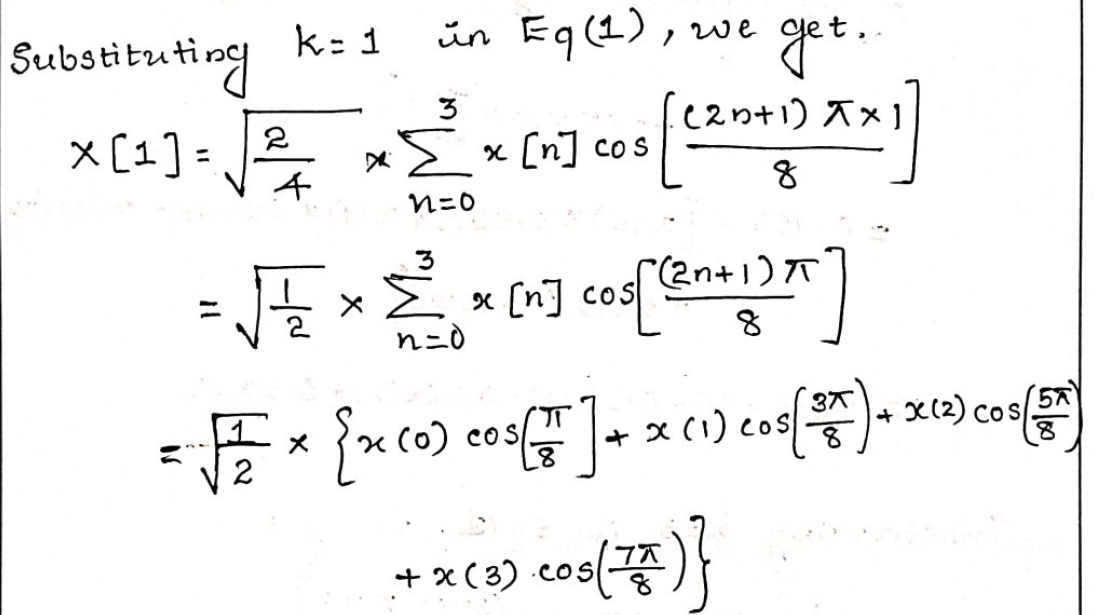 Substituting k=1 in Eq(1), we get.
X[1] = √(2/4) × Σ_{n=0}^{3} x[n] cos[((2n+1)π×1)/8]
= √(1/2) × Σ_{n=0}^{3} x[n] cos[((2n+1)π)/8]
= √(1/2) × {x(0) cos[π/8] + x(1) cos(3π/8) + x(2) cos(5π/8)
+ x(3) cos(7π/8)}